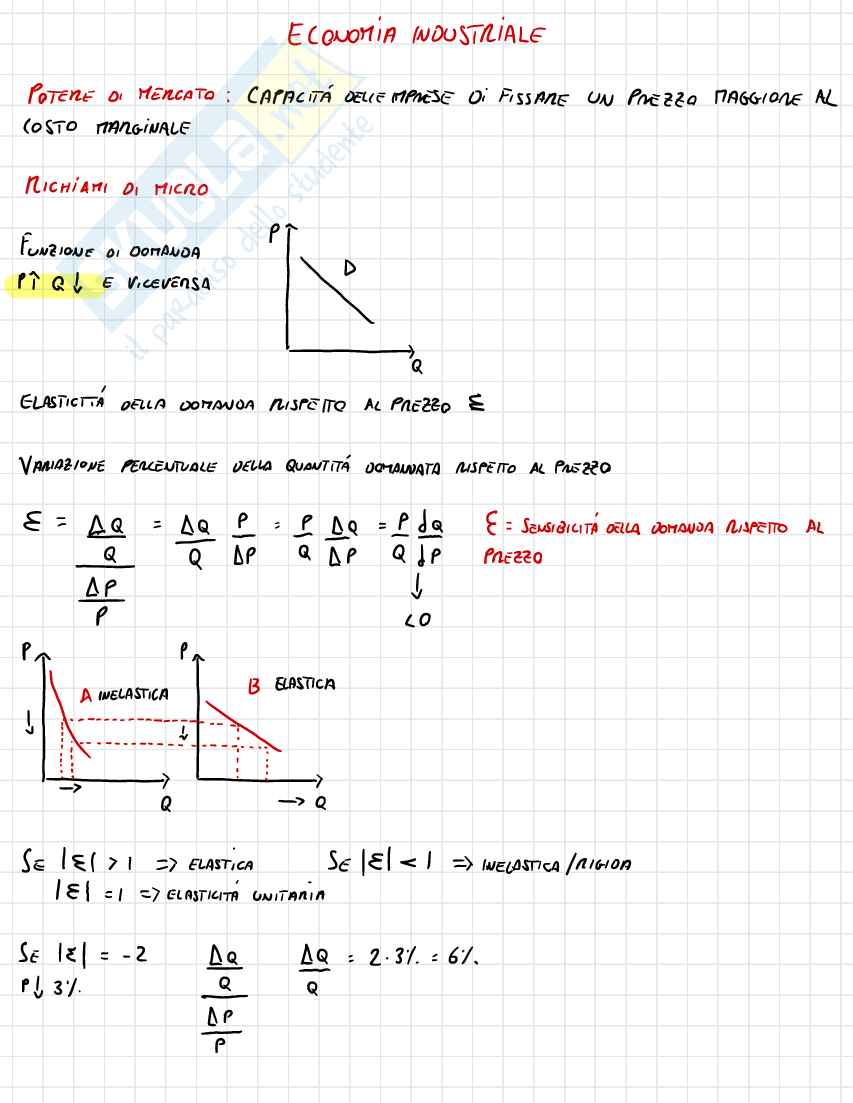 ECONOMIA INDUSTRIALE
POTERE DI MERCATO : CAPACITÁ DELLE IMPRESE DI FISSARE UN PREZZO MAGGIORE AL
COSTO MARGINALE
RICHIAMI DI MICRO
FUNZIONE DI DOMANDA
P↑ Q↓ E VICEVERSA
P
D
Q
ELASTICITÁ DELLA DOMANDA RISPETTO AL PREZZO ε
VARIAZIONE PERCENTUALE DELLA QUANTITÁ DOMANDATA RISPETTO AL PREZZO
ε = ΔQ/Q / ΔP/P = ΔQ/Q P/ΔP = P/Q ΔQ/ΔP = P/Q dQ/dP
↓
<0
ε = SENSIBILITÁ DELLA DOMANDA RISPETTO AL
PREZZO
P
A INELASTICA
↓
→ Q
P
B ELASTICA
↓
→ Q
SE |ε| > 1 => ELASTICA SE |ε| < 1 => INELASTICA/RIGIDA
|ε| = 1 => ELASTICITÁ UNITARIA
SE |ε| = -2 ΔQ/Q / ΔP/P ΔQ/Q = 2·3% = 6%
P↓ 3%
SKUOLA.net
il paradiso dello studente